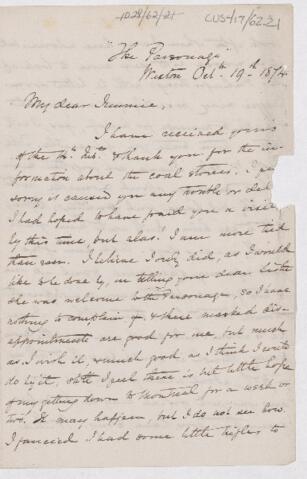 1028/62/21
CUS-17/62.21
"The Parsonage"
Weston Octr. 19th. 1874
My dear Jemmie,
I have received yours
of the thank you for the in-
formation about the coal stoves. I
sorry it caused you any trouble or
I had hoped to have paid you a visit
by this time but alas! I am more tied
than ever. I believe I only did, as I would
like to be done by, in telling your dear Sister
she was welcome to the Parsonage, so I have
nothing to complain of, & these marked dis-
appointments are good for me, but much
as I wish it, & much good as I think I would
do by it, still I feel there is but little hope
of my getting down to Montreal for a week or
two. It may happen but I do not see how.
I fancied I had some little right to